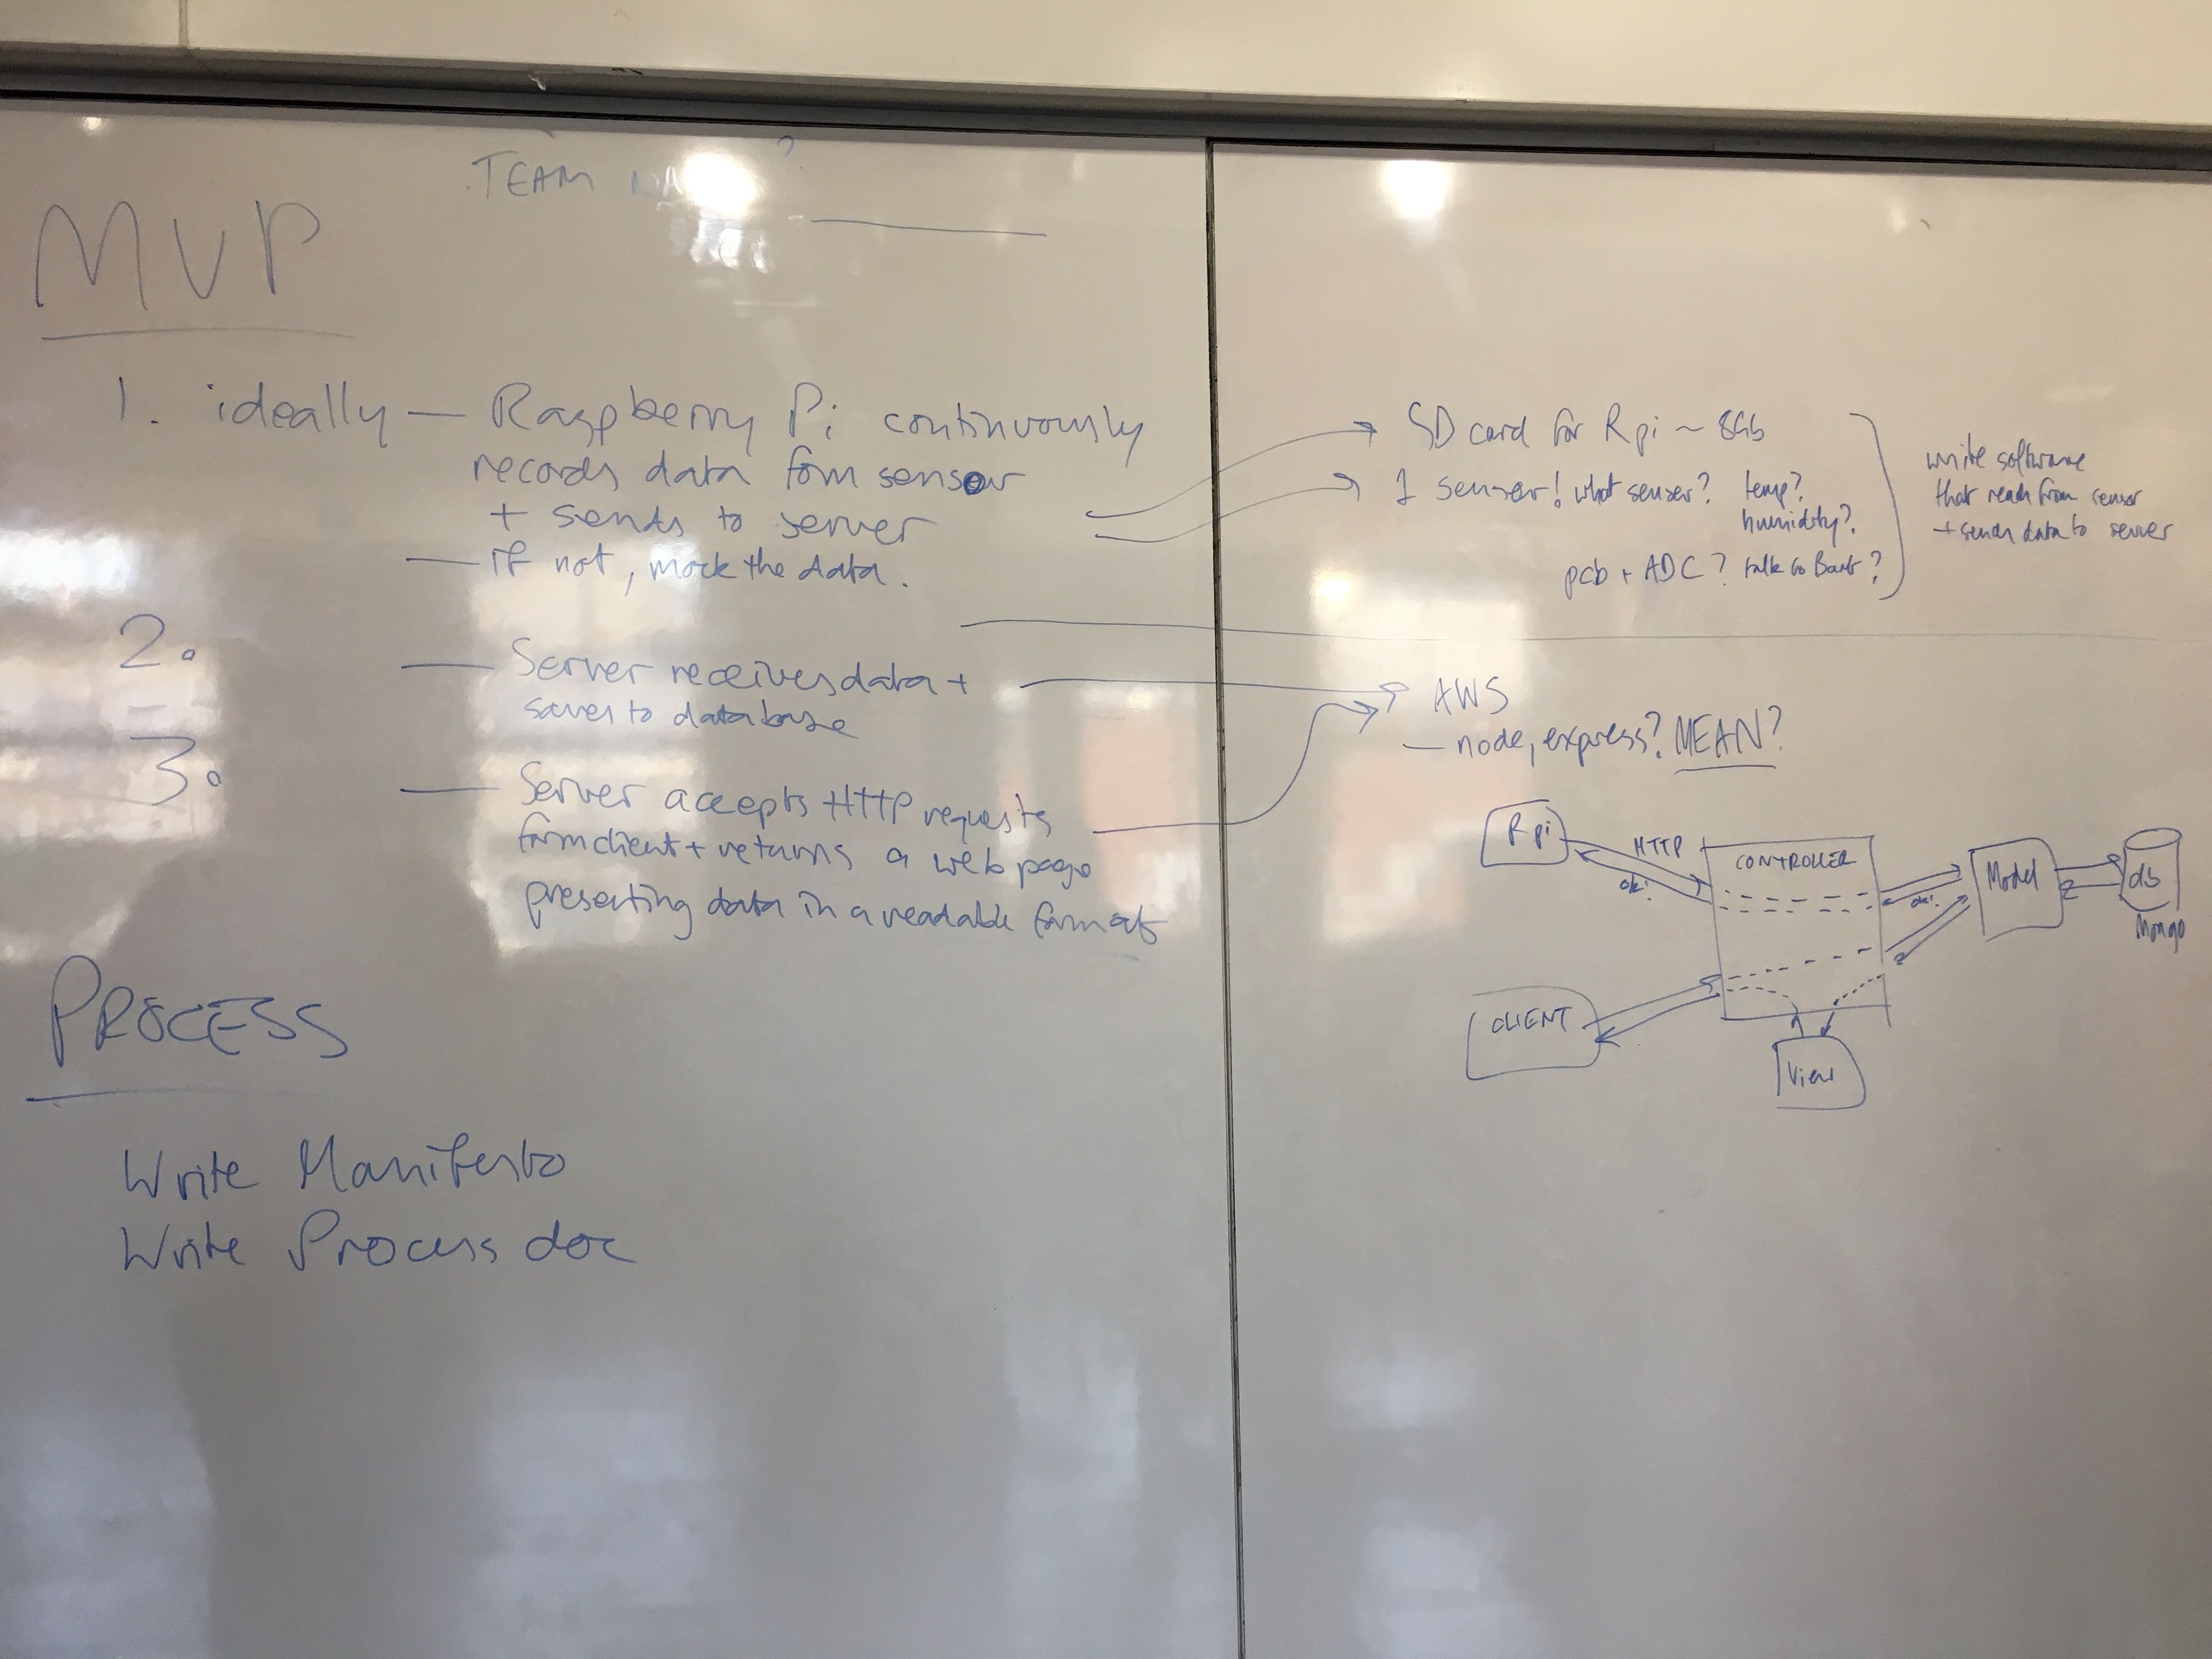 TEAM
MVP
1. ideally — Raspberry Pi continuously
records data from sensor
+ sends to server
— If not, mock the data.
2. — Server receives data +
saves to database
3. — Server accepts HTTP requests
from client + returns a web page
presenting data in a readable format
PROCESS
Write Manifesto
Write Process doc
SD card for Rpi ~ 8Gb
1 sensor! what sensor? temp?
humidity?
pcb + ADC? talk to Bart?
write software
that reads from sensor
+ sends data to server
AWS
— node, express? MEAN?
Rpi
HTTP
ok!
CONTROLLER
ok!
Model
db
Mongo
CLIENT
View